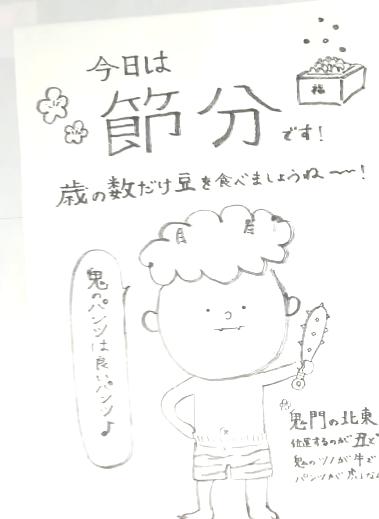 今日は
節分です!
福
歳の数だけ豆を食べましょうね〜!
鬼のパンツは良いパンツ♪
鬼門の北東
位置するのが丑と
鬼のツノが牛で
パンツが虎